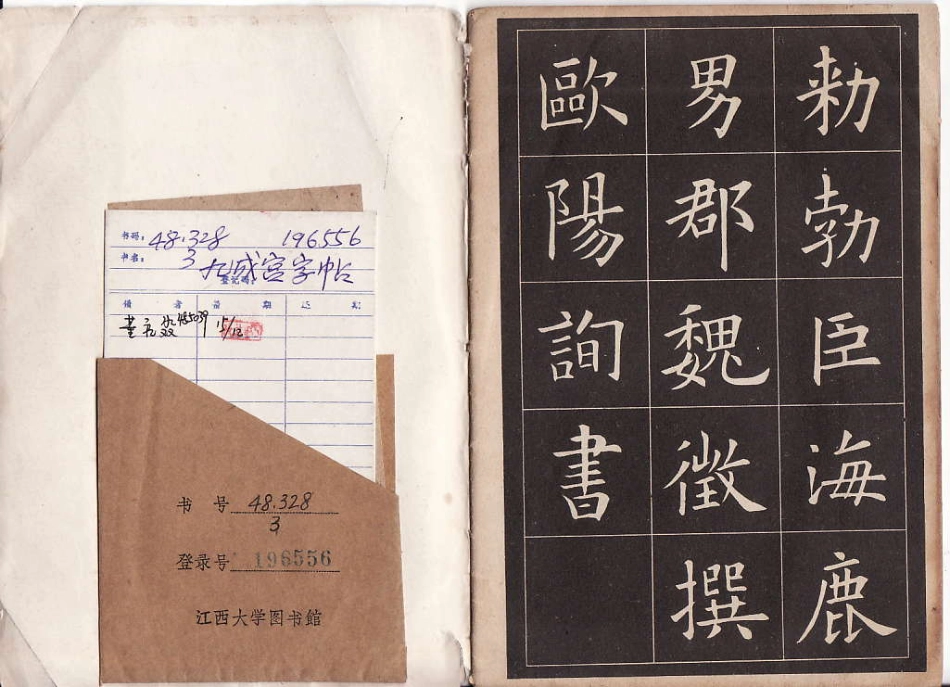 书码: 48.328 196556
书名: 3 九成宫字帖
登记码:
借 者 借 期 还 期
485039 15/12
书 号 48.328
3
登录号 196556
江西大学图书館
勑勃臣海鹿
男郡魏徵撰
歐陽詢書